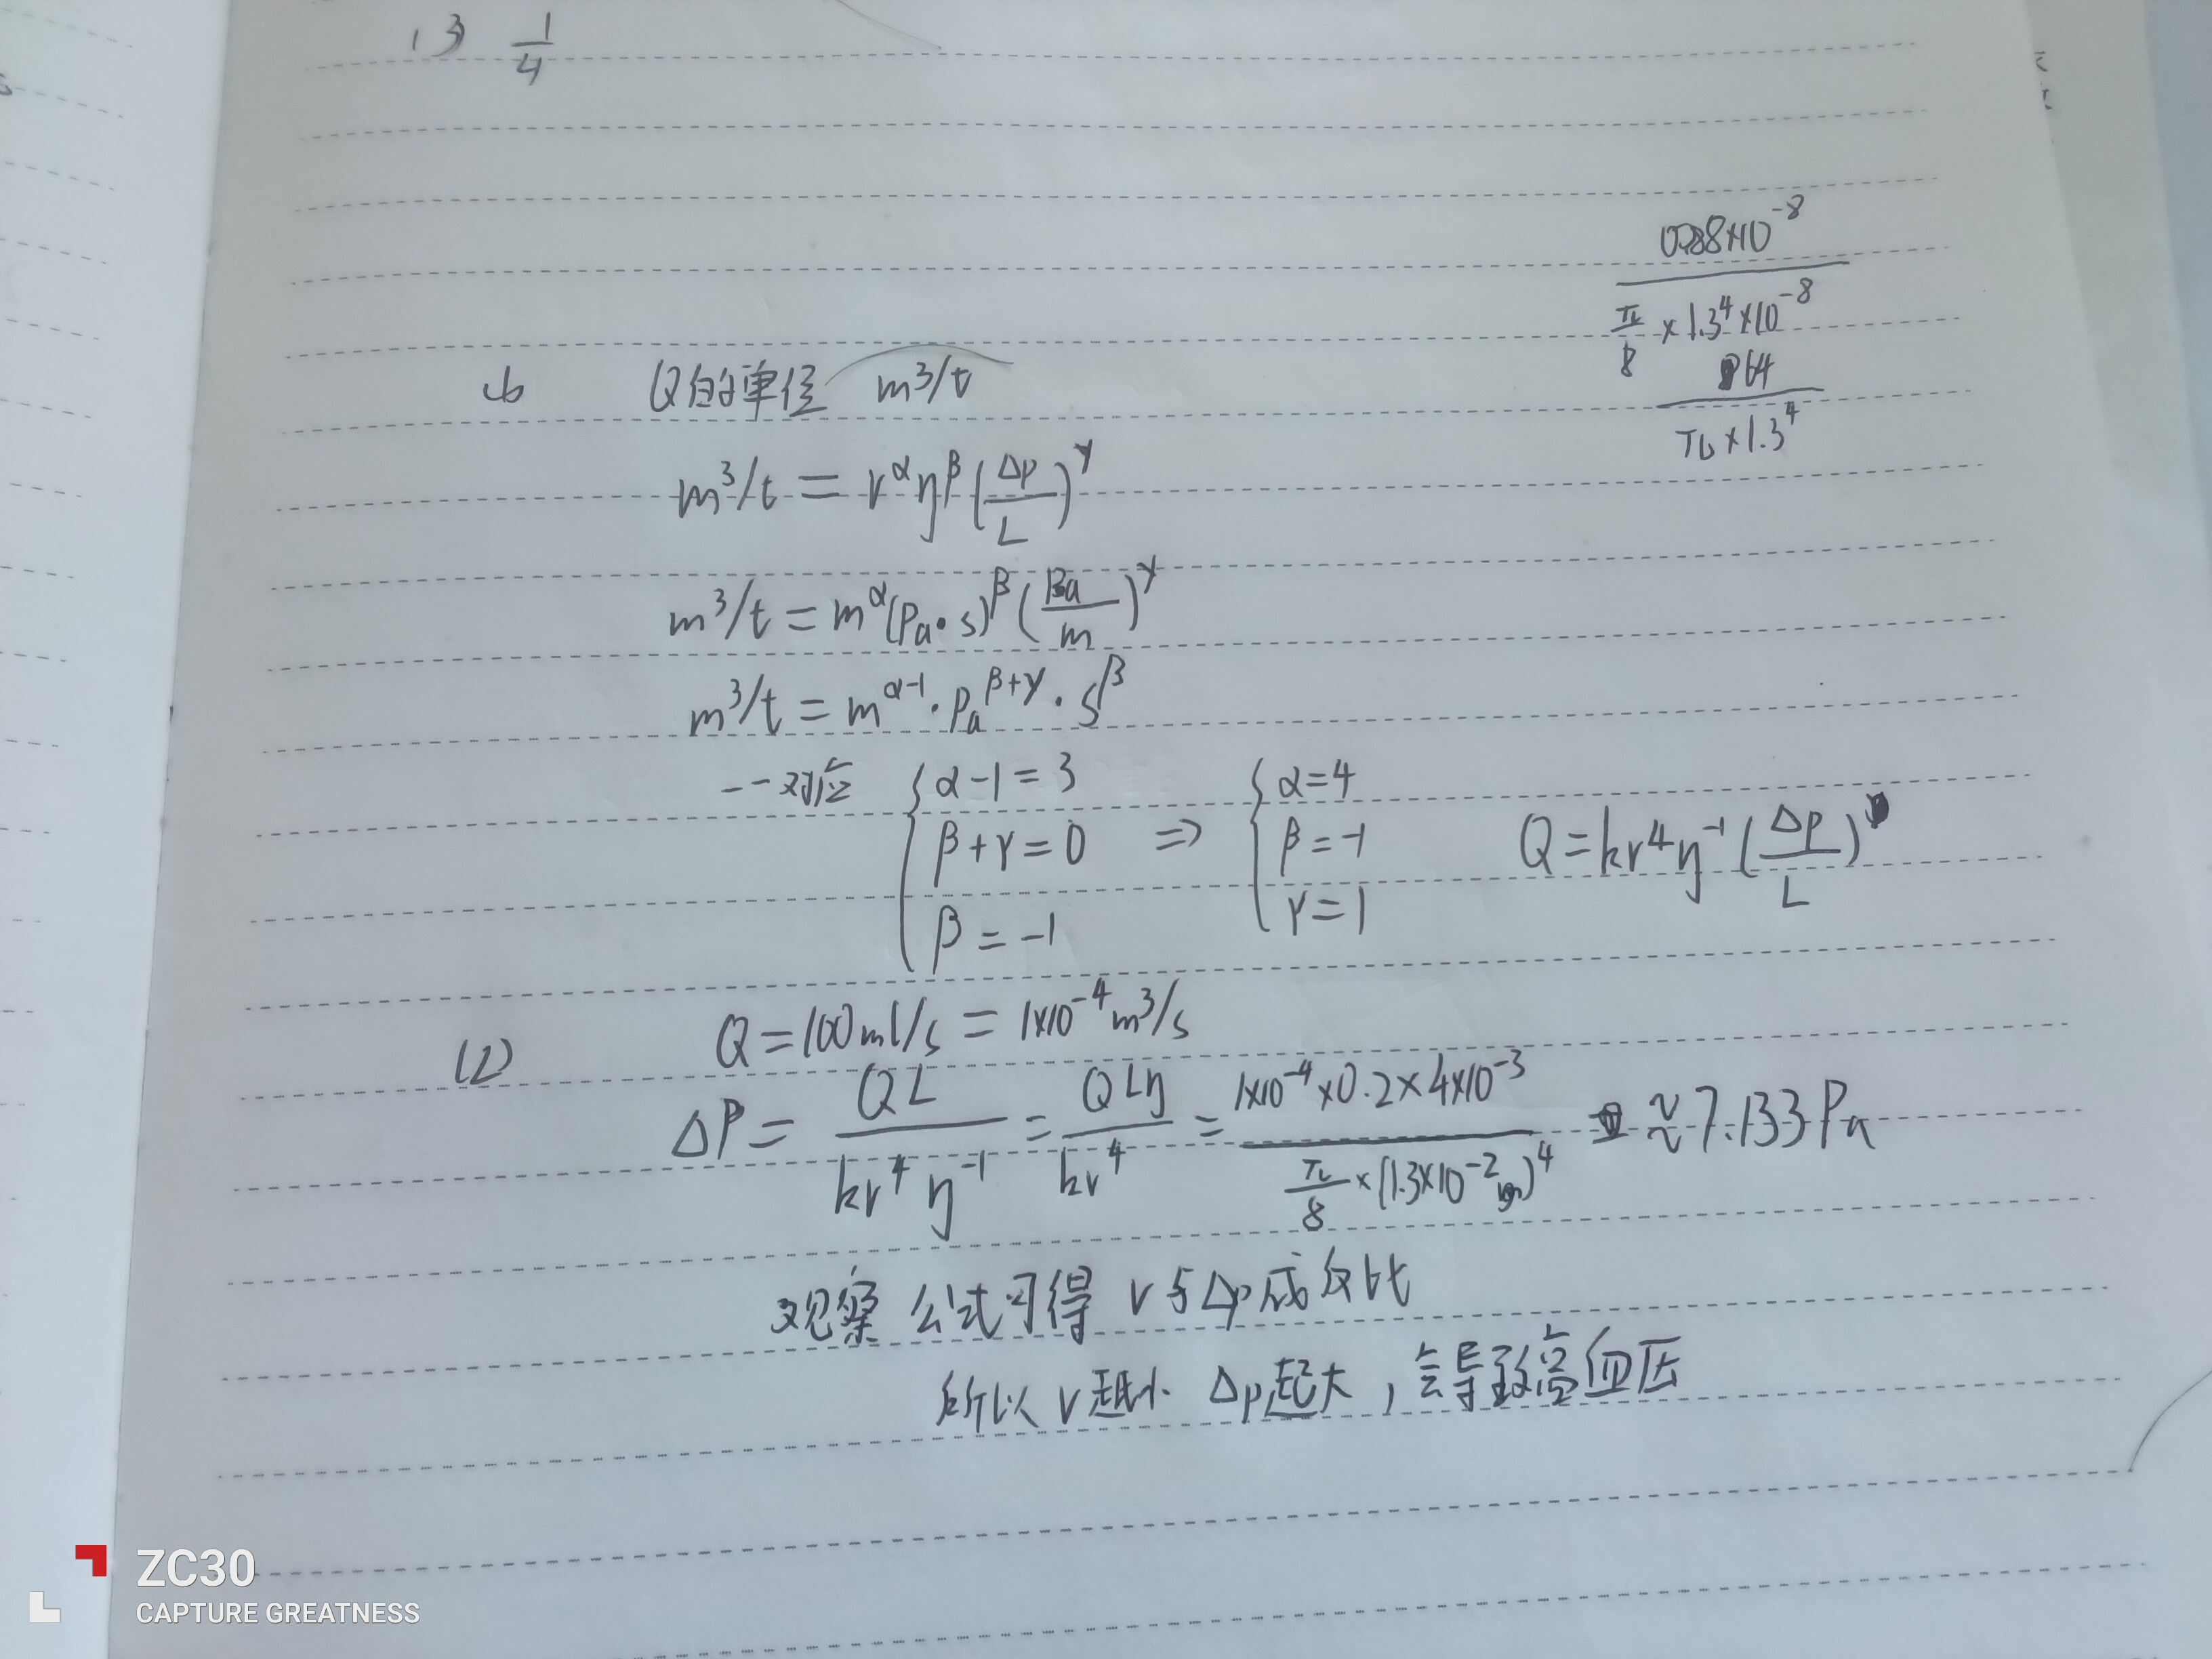 (3) 1/4
0.88×10⁻⁸
π/8 × 1.3⁴×10⁻⁸
64
π×1.3⁴
Q的单位 m³/t
m³/t = r^α η^β (Δp/L)^γ
m³/t = m^α (Pa·s)^β (Pa/m)^γ
m³/t = m^(α-1) · Pa^(β+γ) · s^β
一一对应 { α-1=3 ⇒ { α=4
β+γ=0 β=-1 Q=kr⁴η⁻¹(Δp/L)
β=-1 γ=1
(2) Q=100ml/s = 1×10⁻⁴m³/s
ΔP = QL/(kr⁴η⁻¹) = QLη/(kr⁴) = (1×10⁻⁴×0.2×4×10⁻³)/(π/8×(1.3×10⁻²)⁴) ≈7.133Pa
观察公式可得 r与Δp成反比
所以r越小 Δp越大，会导致高血压
ZC30
CAPTURE GREATNESS